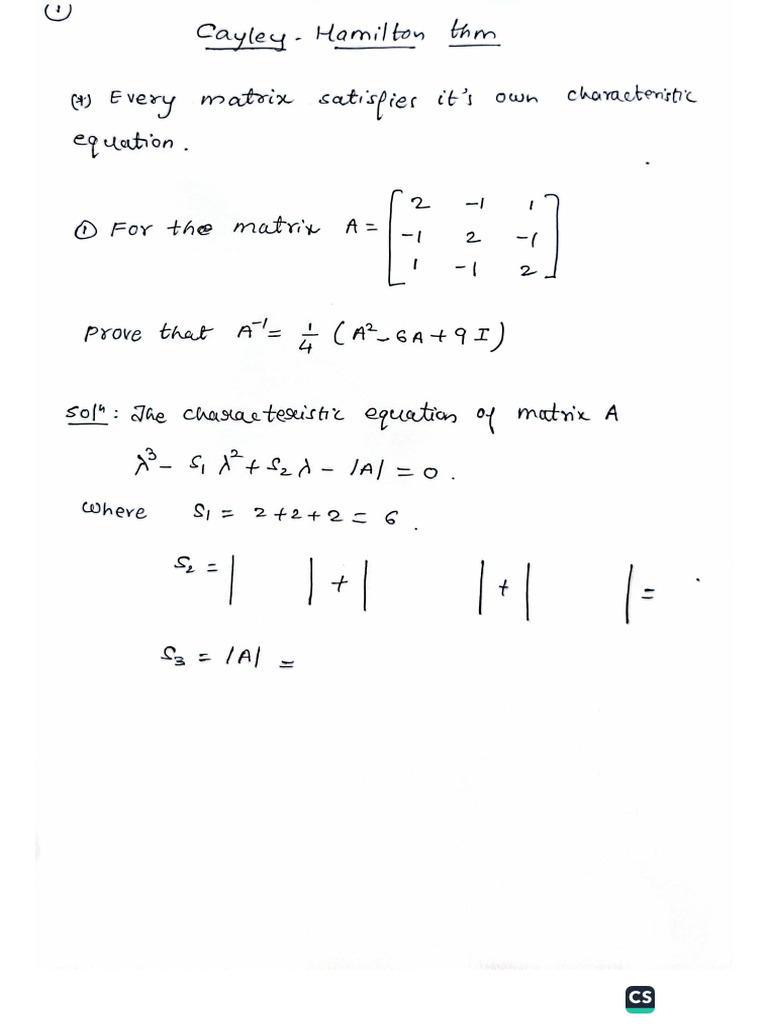 ①
Cayley - Hamilton thm
(*) Every matrix satisfies it's own characteristic
equation.
① For the matrix A = [ 2 -1 1
-1 2 -1
1 -1 2 ]
Prove that A⁻¹ = 1/4 (A² - 6A + 9I)
Solⁿ : The characteristic equation of matrix A
λ³ - S₁ λ² + S₂ λ - |A| = 0 .
where S₁ = 2+2+2 = 6 .
S₂ = |   | + |   | + |   | =
S₃ = |A| =
CS